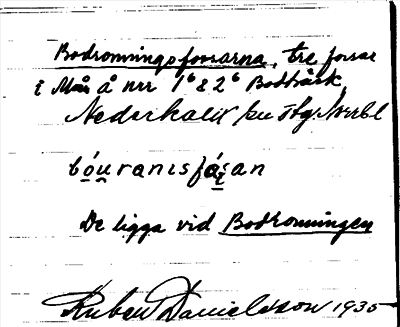 Bodronningsforsarna, tre forsar
i Mån å nrr 1⁶ & 2⁶ Bodträsk
Nederkalix sn Nrrbl
bóuranısfásan
De ligga vid Bodronningen
Ruben Danielsson 1935